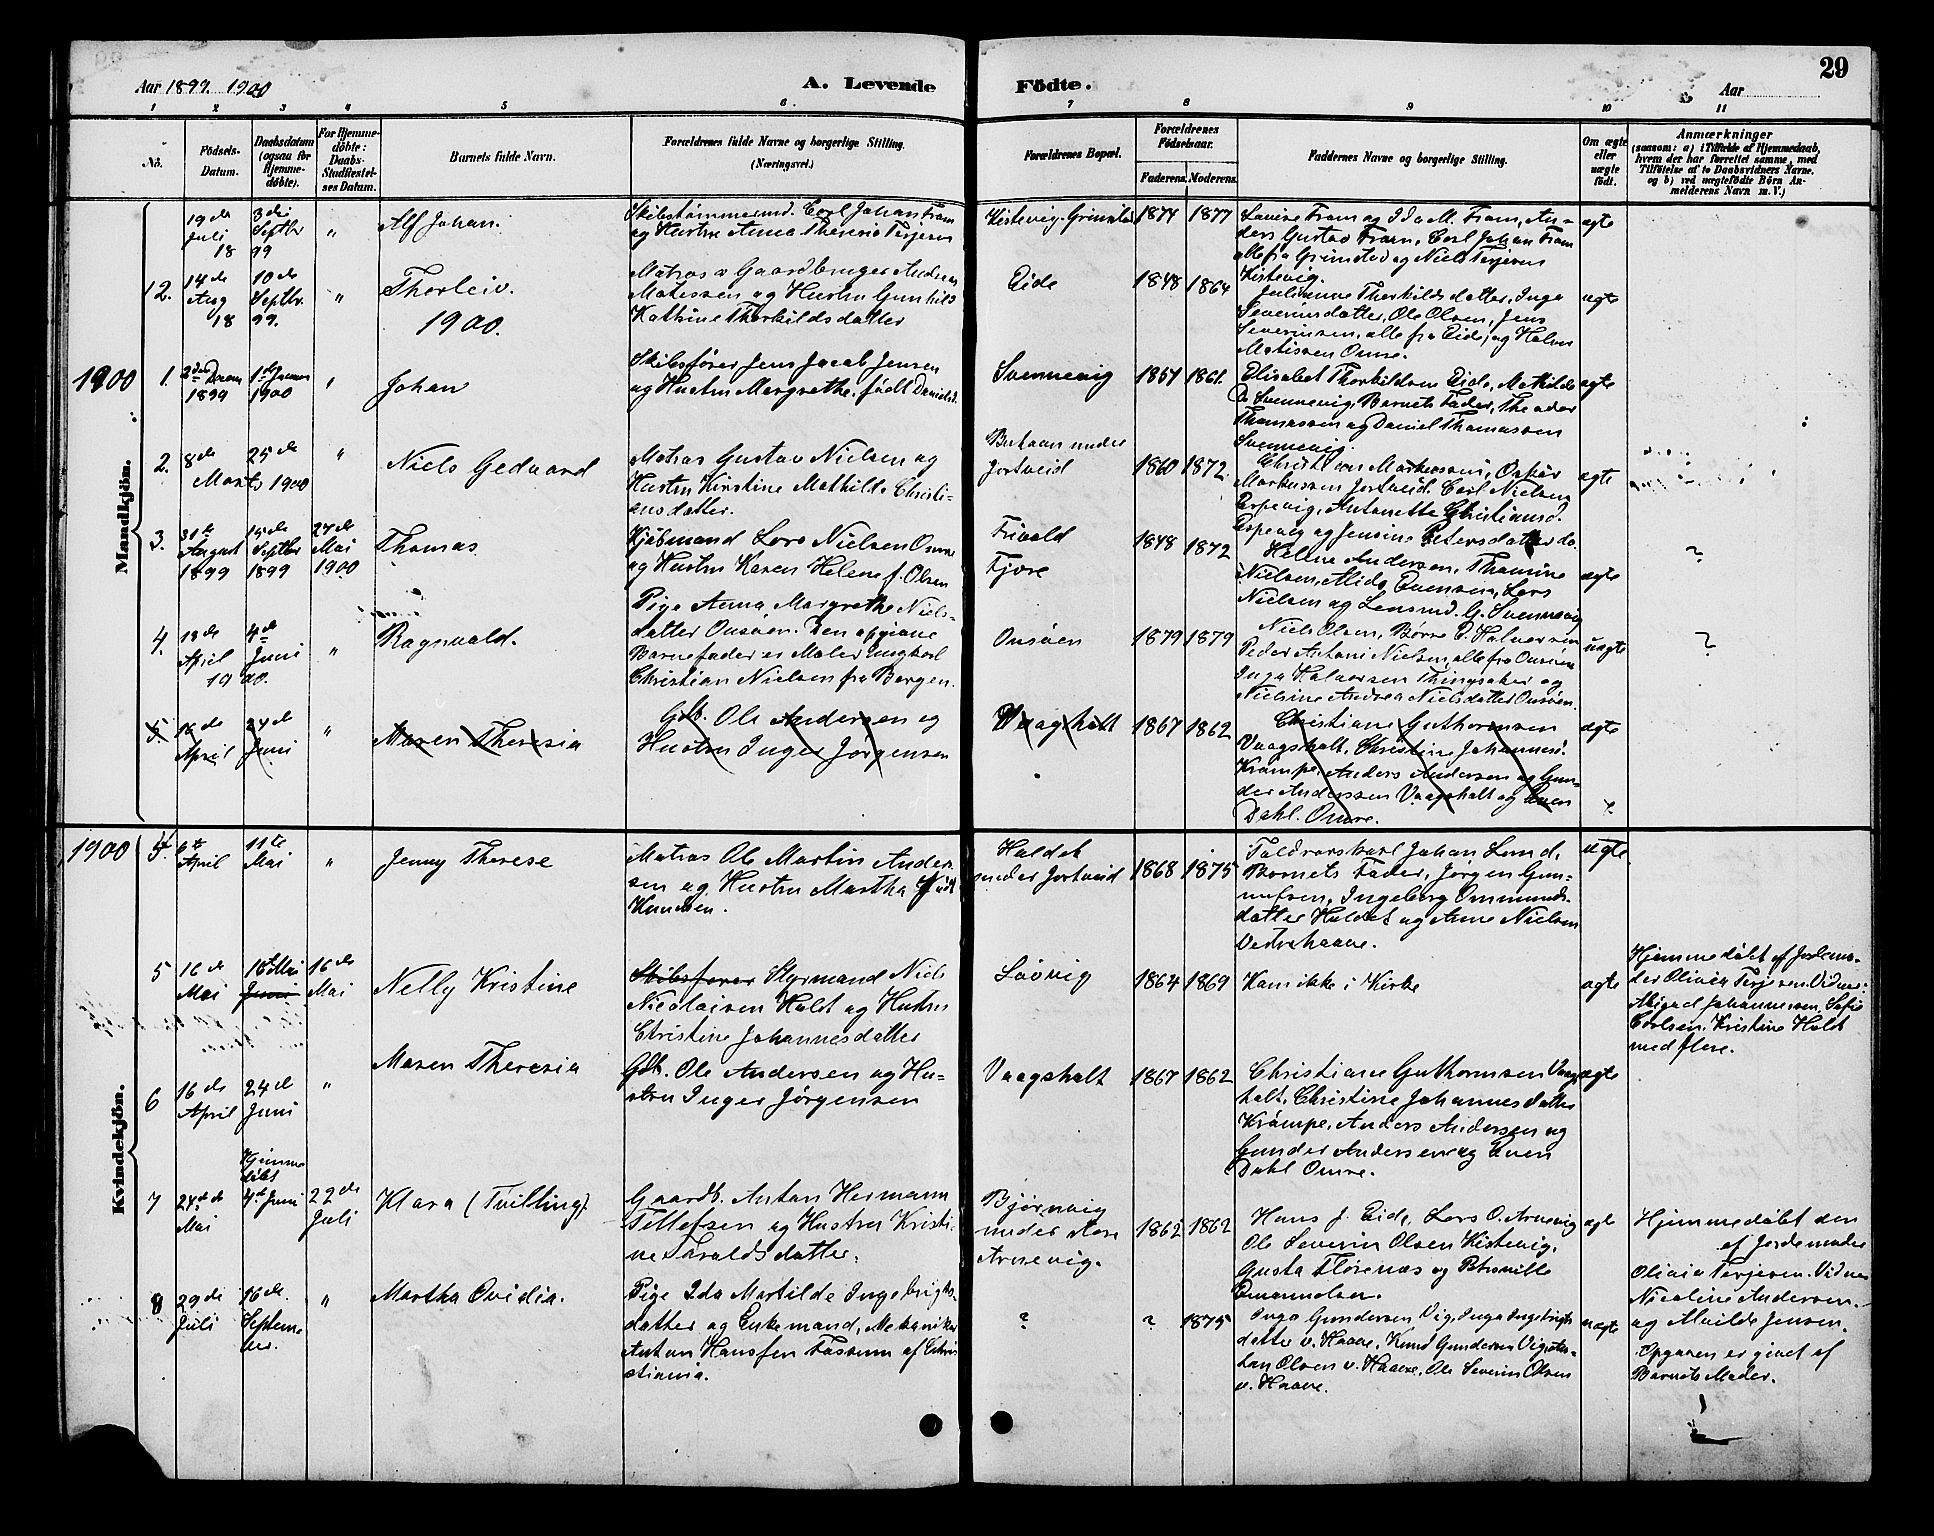 29
Aar 1899. 1900
A. Levende Födte.
Aar
1 2 3 4 5 6. 7 8 9 10 11
No.
Födsels-Datum.
Daabsdatum (ogsaa for Hjemmedöbte).
For Hjemmedöbte: Daabs-Stadfæstelses Datum.
Barnets fulde Navn.
Forældrenes fulde Navne og borgerlige Stilling. (Næringsvei.)
Forældrenes Bopæl.
Forældrenes Födselsaar.
Faderens. Moderens.
Faddernes Navne og borgerlige Stilling.
Om ægte eller uægte födt.
Anmærkninger
(saasom: a) i Tilfælde af Hjemmedaab, hvem der har forrettet samme, med Tilföielse af to Daabsvidners Navne, og b) ved uægtefödte Börn Anmelderens Navn m. V.)
Mandkjön.
19de Juli 18
3die Septbr 99
"
Alf Johan.
Skibstømmermd. Carl Johan Fram
og Hustru Anna Theresia Terjesen
Kistevig, Grimstad
1874 1877
Lovise Fram og Ida M. Fram, An-
ders Gustav Fram, Carl Johan Fram
alle fra Grimstad og Niels Terjesen
Kistevig.
ægte
12. 14de Aug 18
10de Septbr. 99.
"
Thorleiv.
Matros o Gaardbruger Andreas
Matissen og Hustru Gunhild
Kathrine Thorkildsdatter
Eide
1848 1864
Julianne Thorkildsdatter, Inga
Severinsdatter, Ole Olsen, Jens
Severinsen, alle fra Eide, og Halvor
Matissen Omre.
ægte
1900.
1900
1. 2den Decem 1899
1ste Januar 1900
"
Johan
Skibsfører Jens Jacob Jensen
og Hustru Margrethe, født Danielsd.
Svennevig
1857 1861.
Elisabet Thorkildsen Eide, Mathilde
D. Svennevig, Barnets Fader, Theodor
Thomassen og Daniel Thomassen
Svennevig.
ægte
2. 8de Marts
25de 1900
"
Niels Gedvard
Matros Gustav Nielsen og
Hustru Kirstine Mathilde Christi-
ansdatter.
under
Jortveid
1860 1872.
Christian Markussen, Oskar
Markussen Jortveid. Carl Nielsen
Espevig, Antonette Christiansd.
Espevig og Jensine Petersdatter do.
ægte
3. 31te August 1899
15de Septbr 1899
27de Mai 1900
Thomas
Kjøbmand Lars Nielsen Omre
og Hustru Karen Helene f. Olsen
Frivold
Fjære
1848 1872
Helene Andersen, Thomine
Nielsen, Alida Evensen, Lars
Nielsen og Lensmd. G. Svennevig
ægte
?
4. 18de April 19
4de Juni 00.
"
Ragnvald.
Pige Anna Margrethe Niels-
datter Omsøen. Den opgivne
Barnefader er Maler Ungkarl
Christian Nielsen fra Bergen.
Omsöen
1879 1879
Niels Olsen, Børre P. Halvorsen
Peder Antoni Nielsen, alle fra Omsöen
Inga Halvorsen Thingsaker og
Nielsine Andrea Nielsdatter Omsøen.
uægte
?
5. 16de April
24de Juni
"
Maren Theresia
Gdb. Ole Andersen og
Hustru Inger Jørgensen
Vaagsholt
1867 1862
Christiane Guthormsen
Vaagsholt, Christine Johannesd.
Krampe, Anders Andersen og Gun-
der Anderssen Vaagsholt og Even
Dahl. Omre.
ægte
Kvindekjön.
1900
4. 6te April
11te Mai
"
Jenny Therese
Matros Ole Martin Ander-
sen og Hustru Martha født
Knudsen.
Holdet
under Jortveid
1868 1875
Toldrorskarl Johan Lund,
Barnets Fader, Jørgen Gun-
nufsen, Ingeborg Ommunds-
datter Holdet og Anne Nielsen
Vedrehaave.
ægte.
5 16de Mai
16de Mai Juni
16de Mai
Nelly Kristine
Skibsfører Styrmand Niels
Nicolaisen Holdt og Hustru
Christine Johannesdatter
Løvvig
1864 1869
Kom ikke i Kirke
ægte
Hjemmedøbt af Jordemo-
der Olivia Terjesen. Vidner:
Abigael Johannessen, Sofie
Carlsen, Kristine Holdt
med flere.
6 16de April
24de Juni
"
Maren Theresia
Gdb. Ole Andersen og Hu-
stru Inger Jørgensen
Vaagsholt
1867 1862
Christiane Guthormsen Vaags-
holt, Christine Johannesdatter
Krampe, Anders Andersen og
Gunder Andersen og Even
Dahl Omre.
ægte
7 24de Mai
Hjemmedöbt 4de Juni
22de Juli
Klara (Tvilling)
Gaardb. Anton Hermann
Tellefsen og Hustru Kristi-
ne Taraldsdatter.
Bjørnvig
under store
Arnevig.
1862 1862
Hans J. Eide, Lars O. Arnevig
Ole Severin Olsen Kistevig,
Gusta Florenæs og Petronille
Emanuelsen.
ægte
Hjemmedøbt den
af Jordemoder
Olivia Terjesen. Vidner
Nicoline Andersen
og Mailde Jensen.
8 29de Juli
16de September.
"
Martha Ovidia.
Pige Ida Martilde Ingebrigts-
datter og Enkemand, Mekaniker
Anton Hansfen Fossum af Chri-
stiania.
?
? 1875
Inga Gundersen Vig, Inga Ingebrigts-
datter v. Haave, Knud Gundersen Vig,
Olsen v. Haave, Ole Severin Olsen
v. Haave.
uægte
Opgaven er givet af
Barnets Moder.